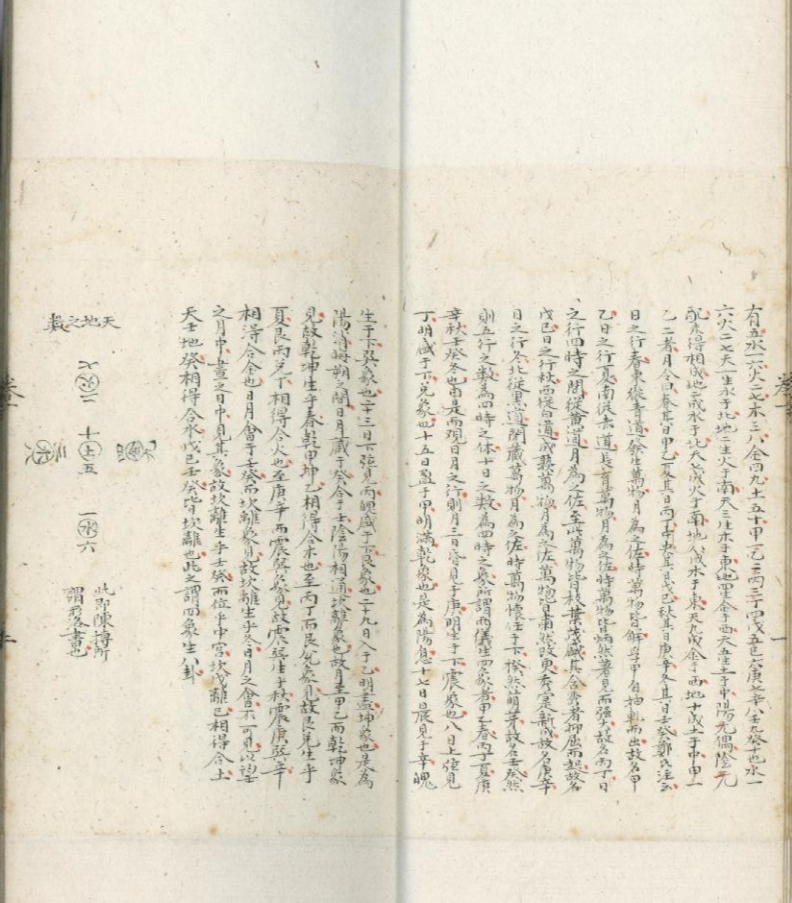 有五水一六火二七木三八金四九土五十甲一乙二丙三丁四戊五己六庚七辛八壬九癸十也水一
六火二七天一生水于北地二生火于南天三生木于東地四生金于西天五生土于中陽无偶陰无
配未得相成地六成水于北天七成火于南地八成木于東天九成金于西地十成土于中甲一
乙二者月令曰春其日甲乙夏其日丙丁中央其日戊己秋其日庚辛冬其日壬癸鄭氏注云
日之行春東從青道發生萬物月為之佐時萬物皆解孚甲自抽軋而出故名甲
乙日之行夏南從赤道長育萬物月為之佐時萬物皆炳然著見而强大故名丙丁日
之行四時之間從黃道月為之佐至此萬物皆枝葉茂盛其含秀者抑屈而起故名
戊己日之行秋西從白道成熟萬物月為之佐萬物皆肅然改更秀實新成故名庚辛
日之行冬北從黑道閉藏萬物月為之佐時萬物懷任于下揆然萌芽故名壬癸然
則五行之數為四時之体十日之數為四時之象所謂兩儀生四象者甲乙春丙丁夏庚
辛秋壬癸冬也由是而觀日月之行則月三日昏見于庚明生于下震象也八日上弦見
丁明盛于下兌象也十五日盈于甲明滿乾象也是為陽息十七日晨見于辛魄
生于下巽象也二十三日下弦見丙魄盛于下艮象也二十九日入于乙明盡坤象也是為
陽消晦朔之間日月藏于癸合于壬陰陽相通坎離象也故月至甲乙而乾坤象
見故乾坤生乎春乾甲坤乙相得合木也至丙丁而艮兌象見故艮兌生乎
夏艮丙兌丁相得合火也至庚辛而震巽象見故震巽生乎秋震庚巽辛
相得合金也日月會于壬癸而坎離象見故坎離生乎冬日月之會不可見以望
之月中晝之日中見其象故坎離生乎壬癸而位乎中宮坎戊離己相得合土
天壬地癸相得合水戊己壬癸皆坎離也此之謂四象生八卦
天地之數
七 火 二
十 土 五
一 水 六
此即陳摶所
謂
書也